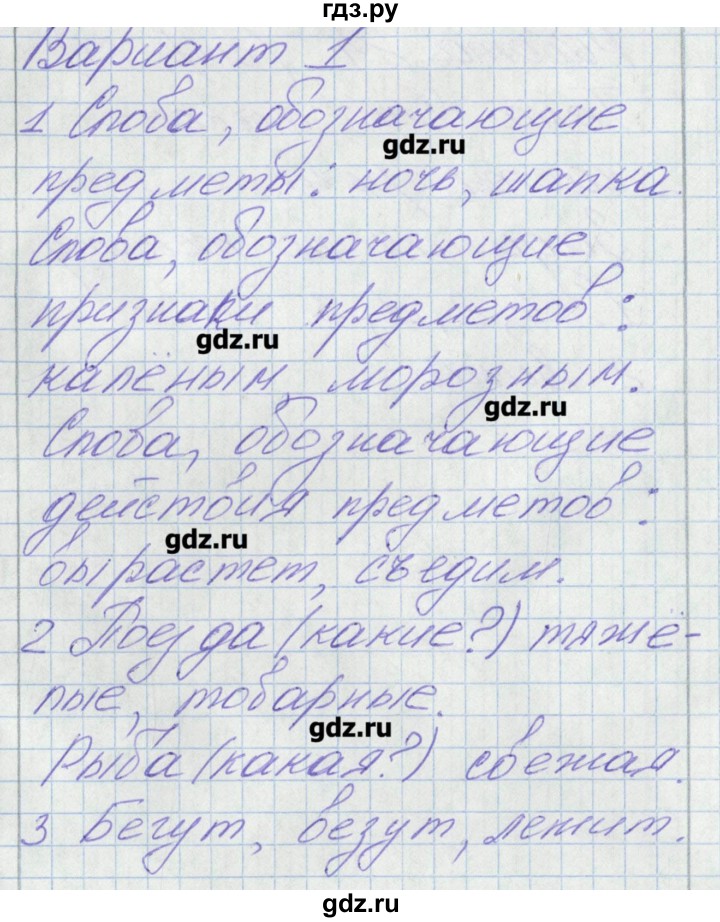 гдз.ру
Вариант 1
1 Слова, обозначающие
gdz.ru
предметы: ночь, шапка.
Слова, обозначающие
признаки предметов:
gdz.ru
калёным морозным.
gdz.ru
Слова, обозначающие
действия предметов:
gdz.ru
вырастет, съедим.
2 Поезда (какие?) тяжё-
лые, товарные.
gdz.ru
Рыба (какая?) свежая.
3 Бегут, везут, лежит.
гдз.ру